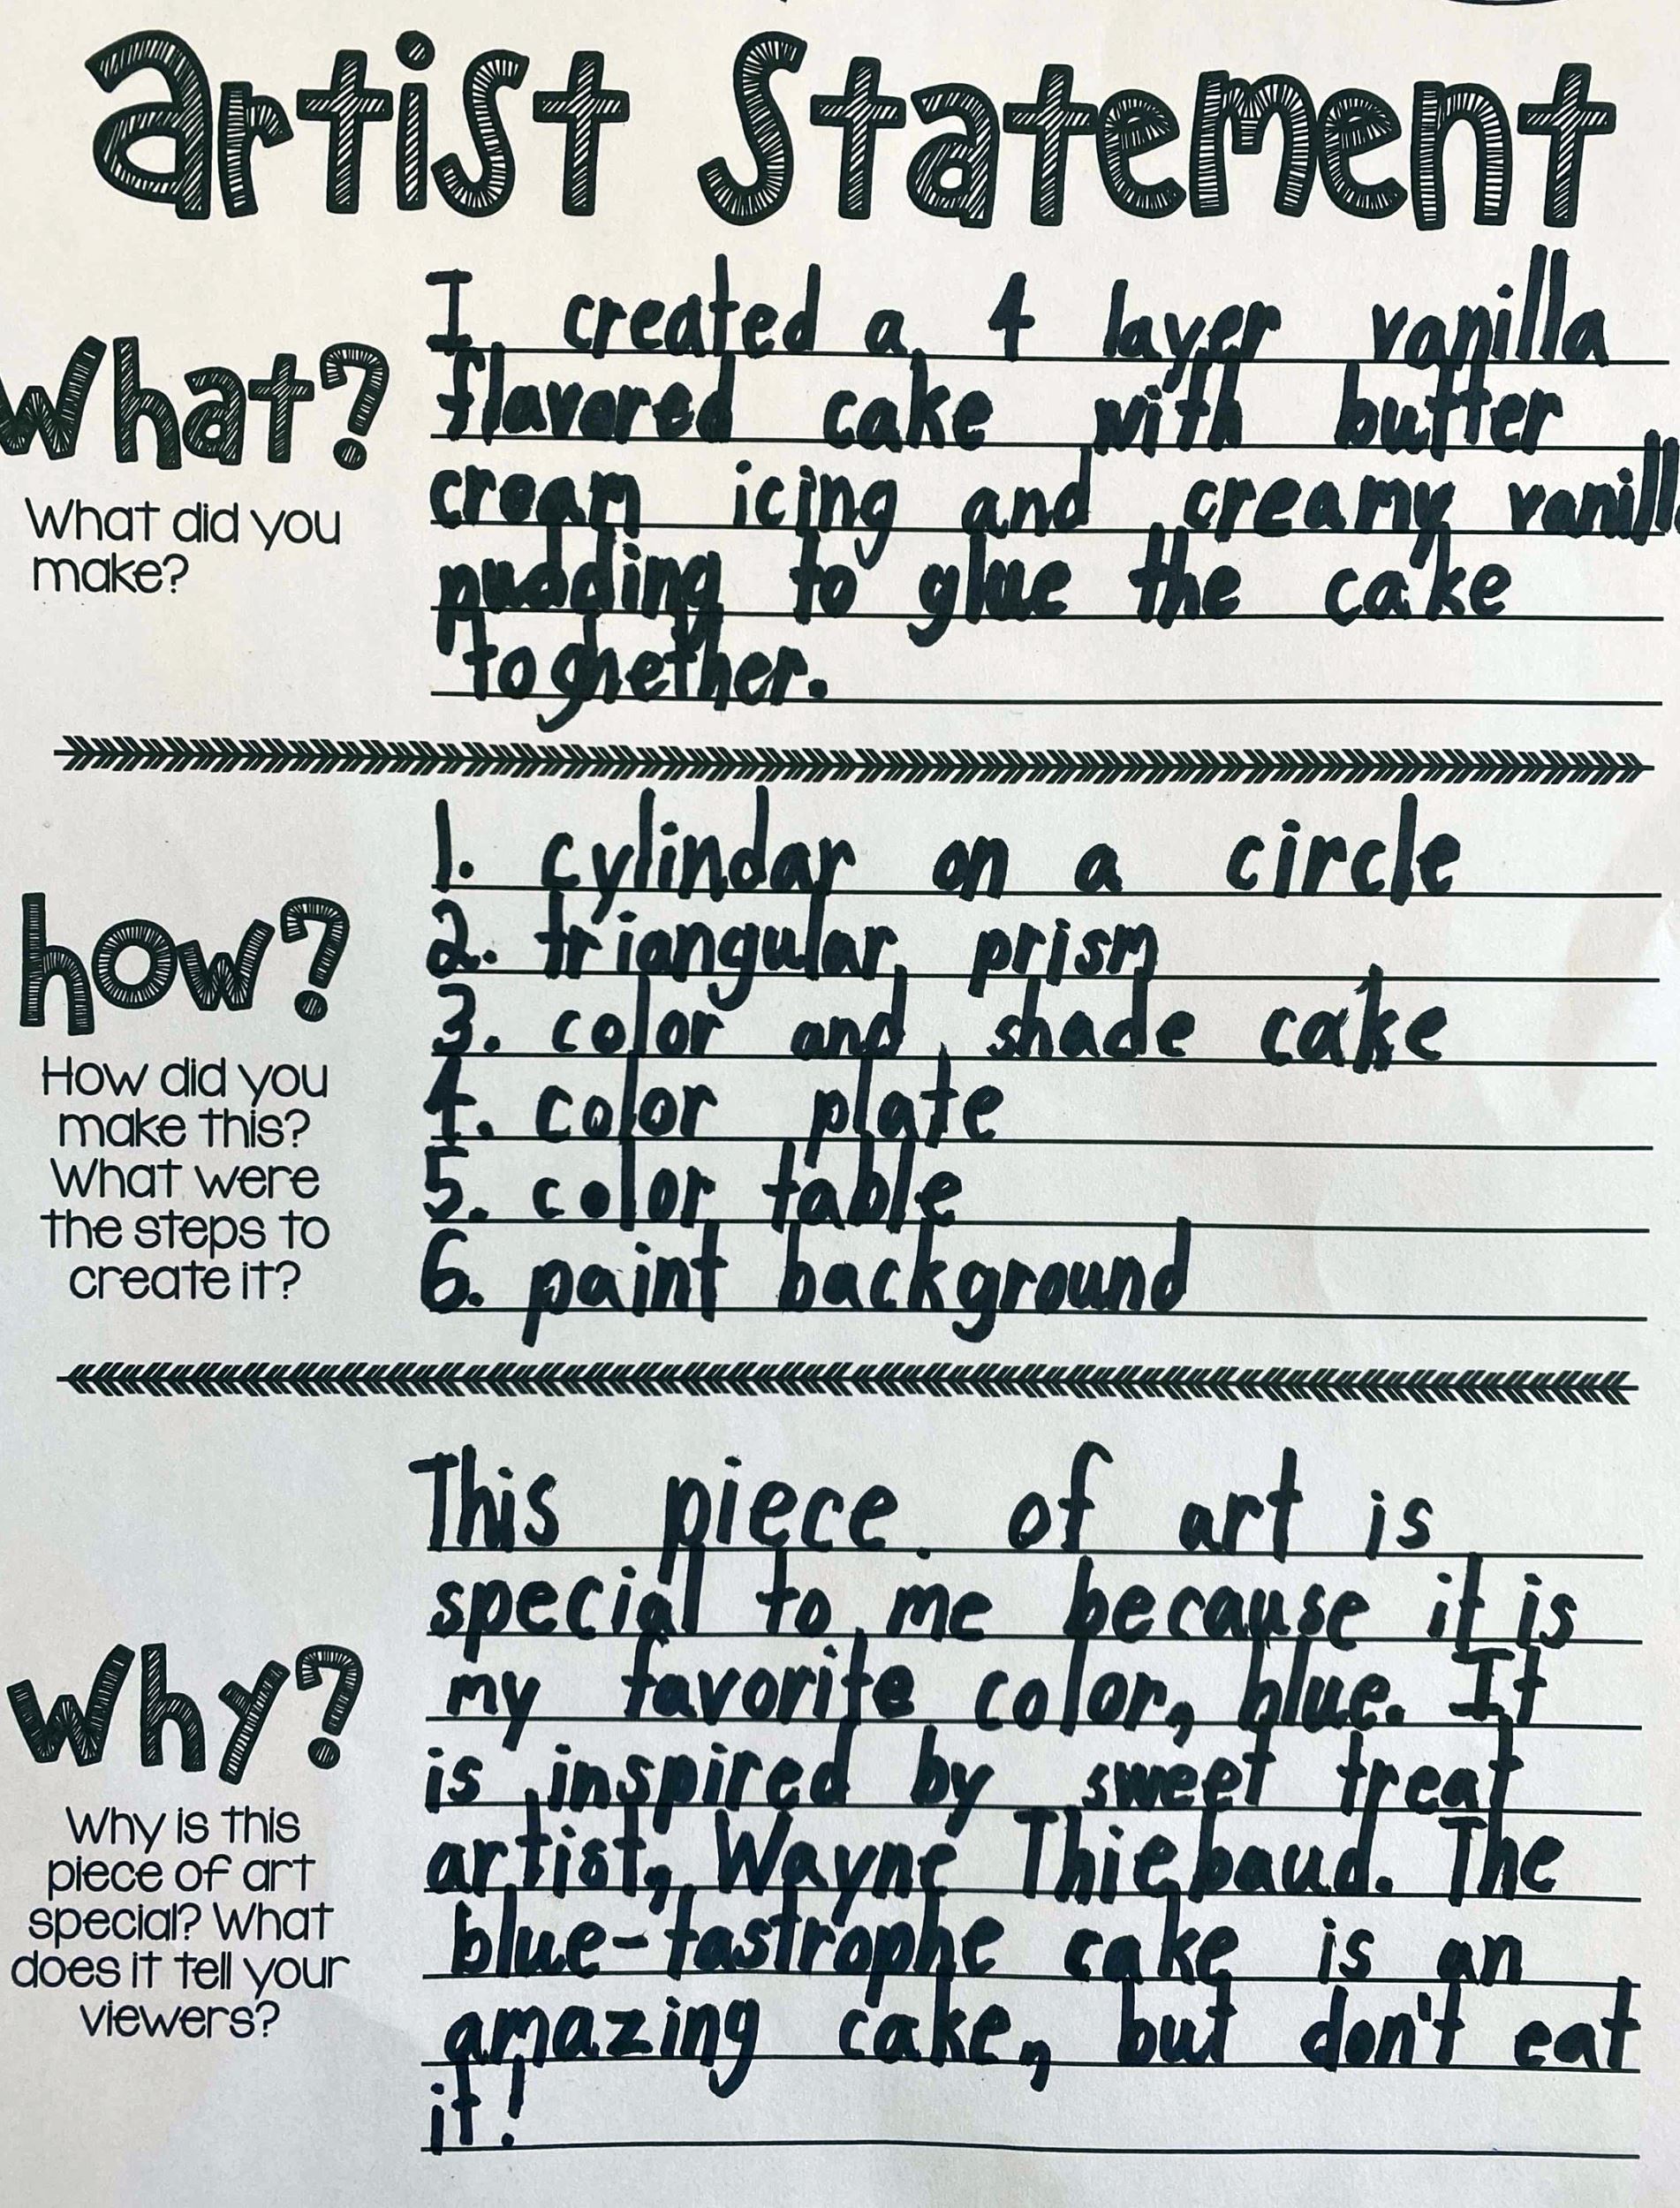 artist Statement
What?
What did you
make?
I created a 4 layer vanilla
flavored cake with butter
cream icing and creamy vanilla
pudding to glue the cake
toghether.
how?
How did you
make this?
What were
the steps to
create it?
1. cylindar on a circle
2. triangular prism
3. color and shade cake
4. color plate
5. color table
6. paint background
Why?
Why is this
piece of art
special? What
does it tell your
viewers?
This piece of art is
special to me because it is
my favorite color, blue. It
is inspired by sweet treat
artist, Wayne Thiebaud. The
blue-tastrophe cake is an
amazing cake, but don't eat
it!